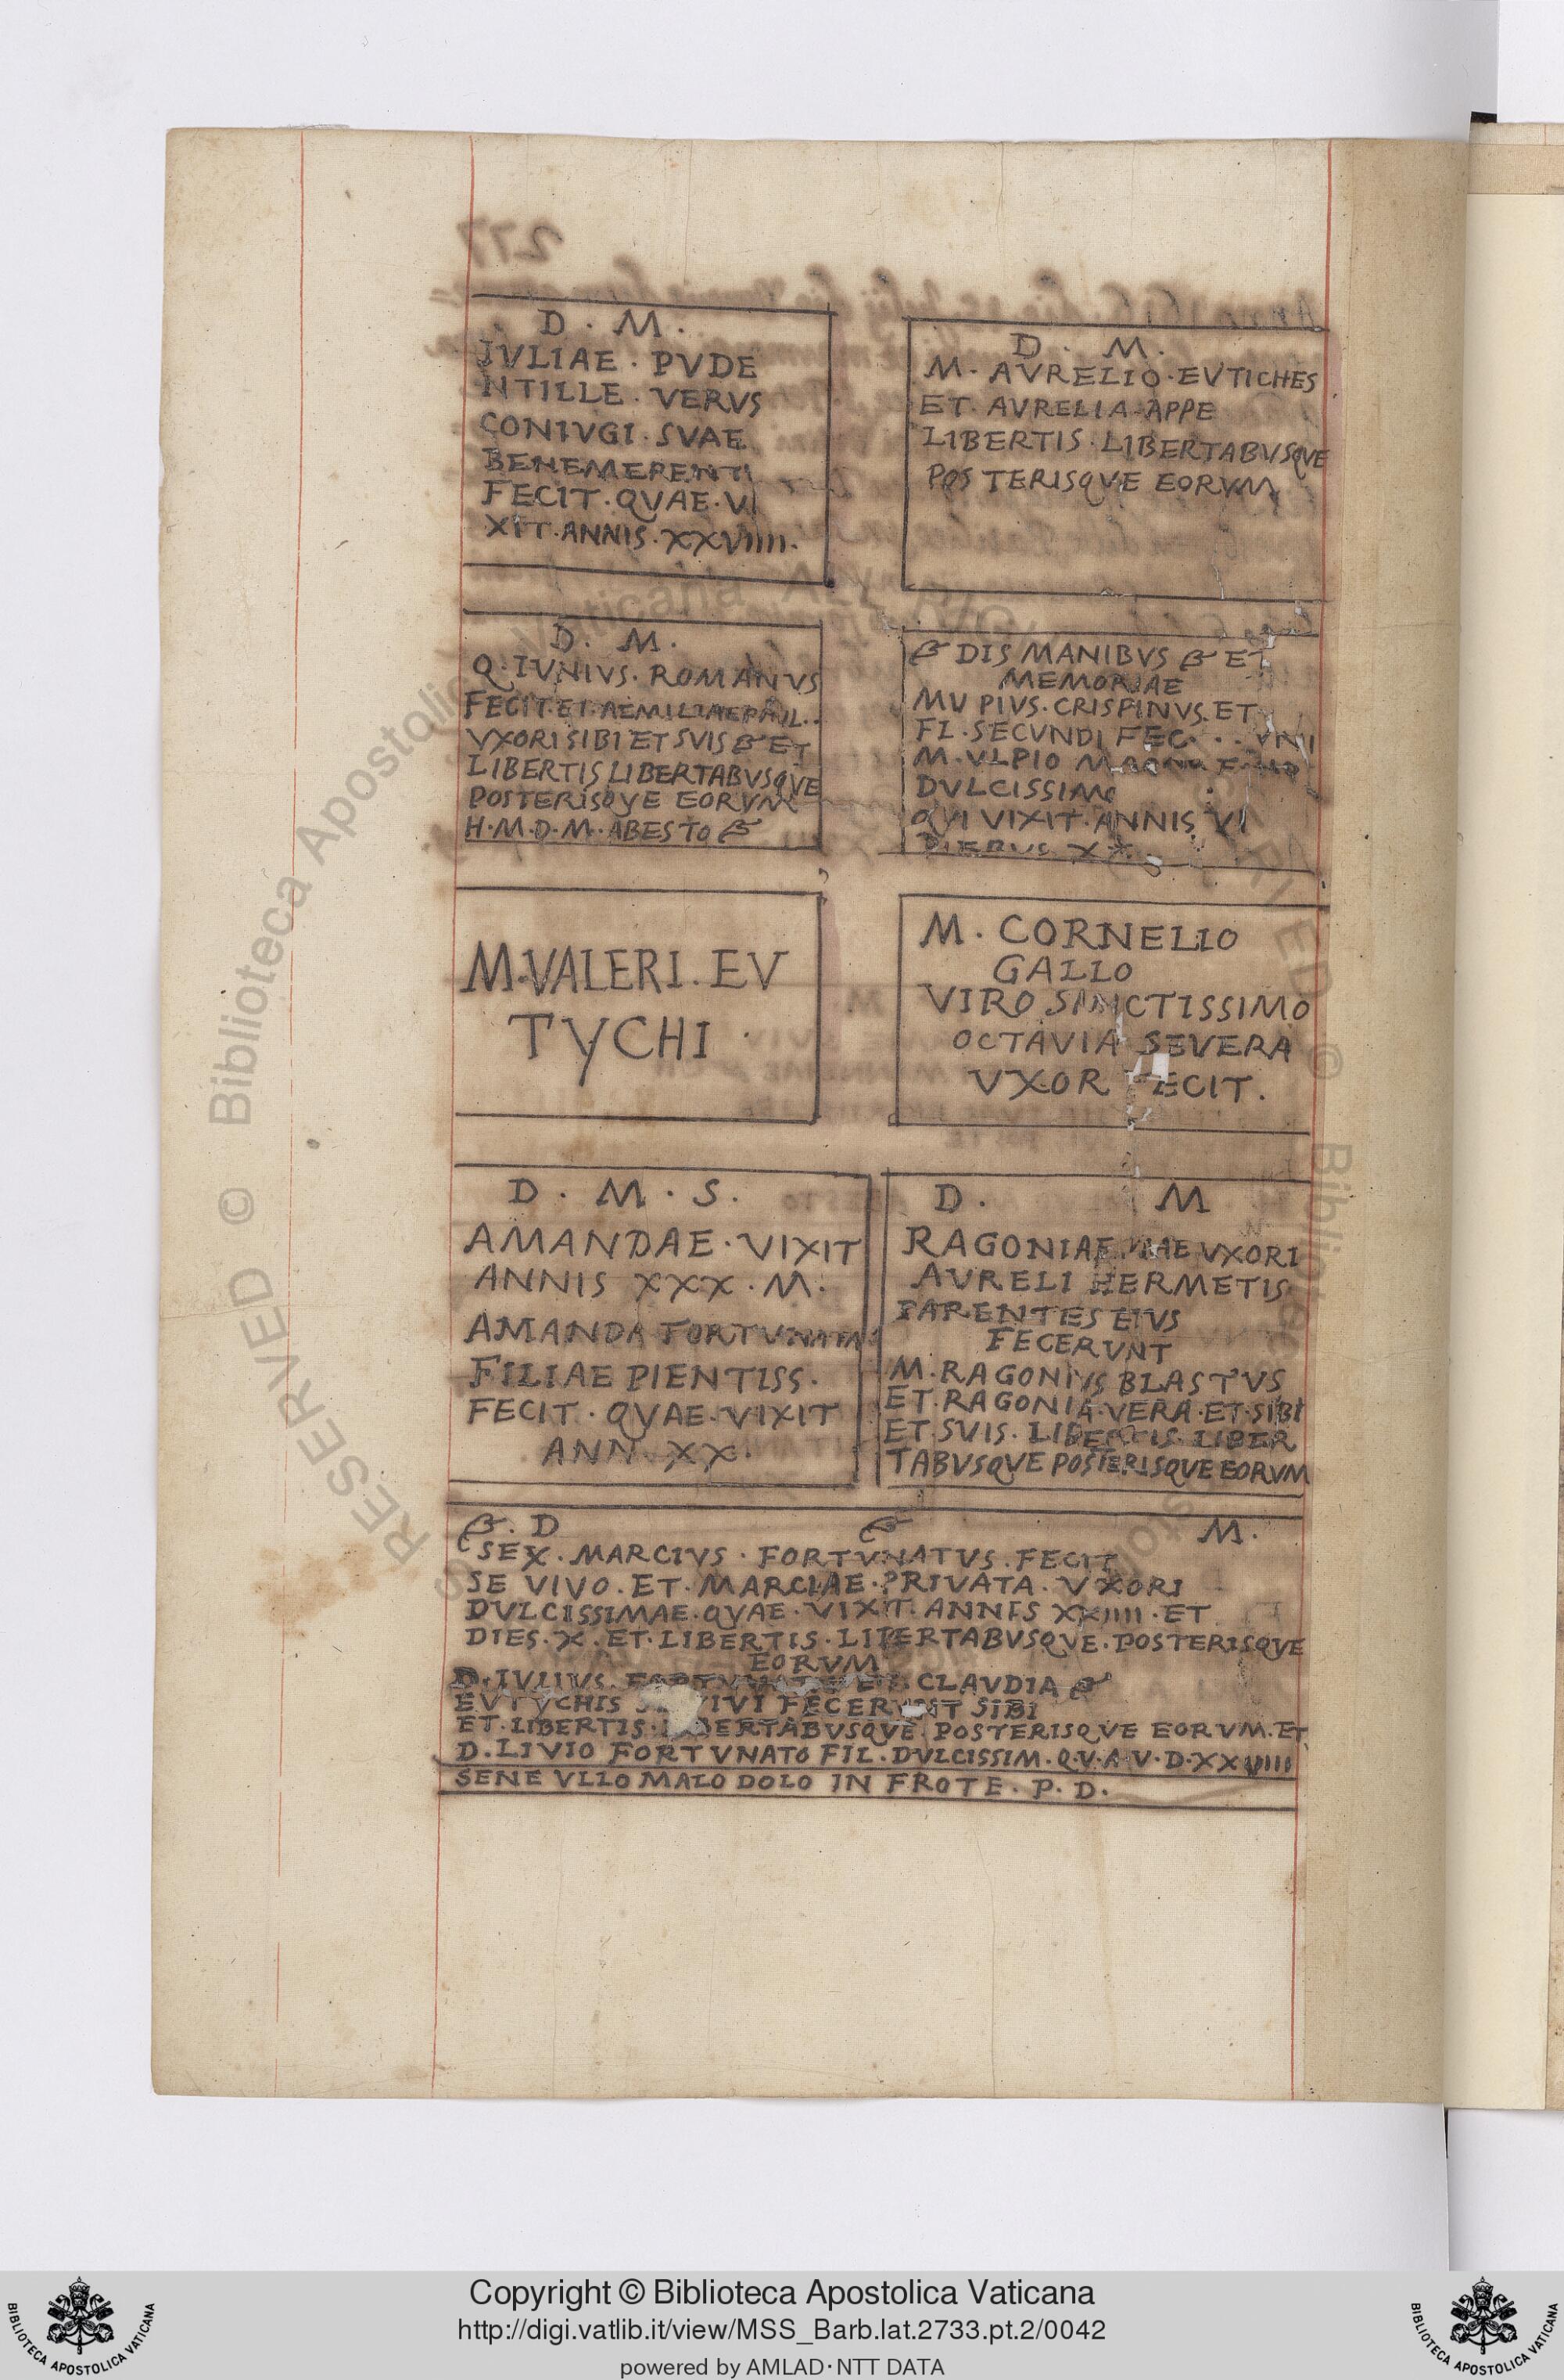 D . M .
IVLIAE . PVDE
NTILLE . VERVS
CONIVGI . SVAE
BENEMERENTI
FECIT . QVAE . VI
XIT . ANNIS . XXVIIII .
D . M .
M . AVRELIO . EVTICHES
ET . AVRELIA APPE
LIBERTIS . LIBERTABVSQVE
POSTERISQVE EORVM
D . M .
Q . IVNIVS . ROMANVS
FECIT . ET . AEMILIAE
VXORI SIBI ET SVIS ET
LIBERTIS LIBERTABVSQVE
POSTERISQVE EORVM
H . M . D . M . ABESTO
DIS MANIBVS ET
MEMORIAE
MV PIVS . CRISPINVS . ET
FL . SECVNDI FEC . . .
M . VLPIO
DVLCISSIMO
QVI VIXIT . ANNIS VI
DIEBVS XX
M . VALERI . EV
TYCHI
M . CORNELIO
GALLO
VIRO SANCTISSIMO
OCTAVIA SEVERA
VXOR FECIT .
D . M . S .
AMANDAE . VIXIT
ANNIS XXX . M .
AMANDA FORTVNATA
FILIAE PIENTISS .
FECIT . QVAE . VIXIT
ANN . XX .
D . M
RAGONIAE VXORI
AVRELI HERMETIS
PARENTES EIVS
FECERVNT
M . RAGONIVS BLASTVS
ET . RAGONIA . VERA . ET . SIBI
ET . SVIS . LIBERTIS . LIBER
TABVSQVE POSTERISQVE EORVM
D M .
SEX . MARCIVS . FORTVNATVS . FECIT
SE VIVO . ET . MARCIAE . PRIVATA . VXORI
DVLCISSIMAE . QVAE . VIXIT . ANNIS XXIIII . ET
DIES . X . ET . LIBERTIS . LIBERTABVSQVE . POSTERISQVE
EORVM
D . IVLIVS . CLAVDIA
EVTYCHIS VIVI FECERVNT SIBI
ET . LIBERTIS . LIBERTABVSQVE . POSTERISQVE EORVM . ET
D . LIVIO FORTVNATO FIL . DVLCISSIM . Q . V . A . V . D . XXVIIII
SENE VLLO MALO DOLO IN FROTE . P . D .
RESERVED © Biblioteca Apostolica Vaticana
Copyright © Biblioteca Apostolica Vaticana
http://digi.vatlib.it/view/MSS_Barb.lat.2733.pt.2/0042
powered by AMLAD·NTT DATA
BIBLIOTECA APOSTOLICA VATICANA
BIBLIOTECA APOSTOLICA VATICANA